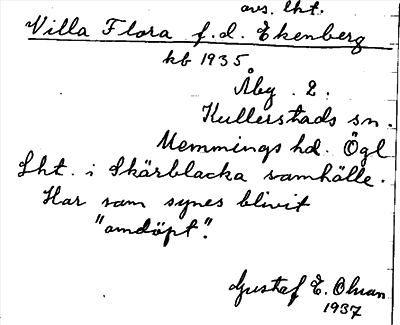 avs. lht.
Villa Flora f.d. Ekenberg
kb 1935
Åby 2.
Kullerstads sn.
Memmings hd. Ögl
Lht. i Skärblacka samhälle.
Har som synes blivit
"omdöpt".
Gustaf E. Ohman
1937